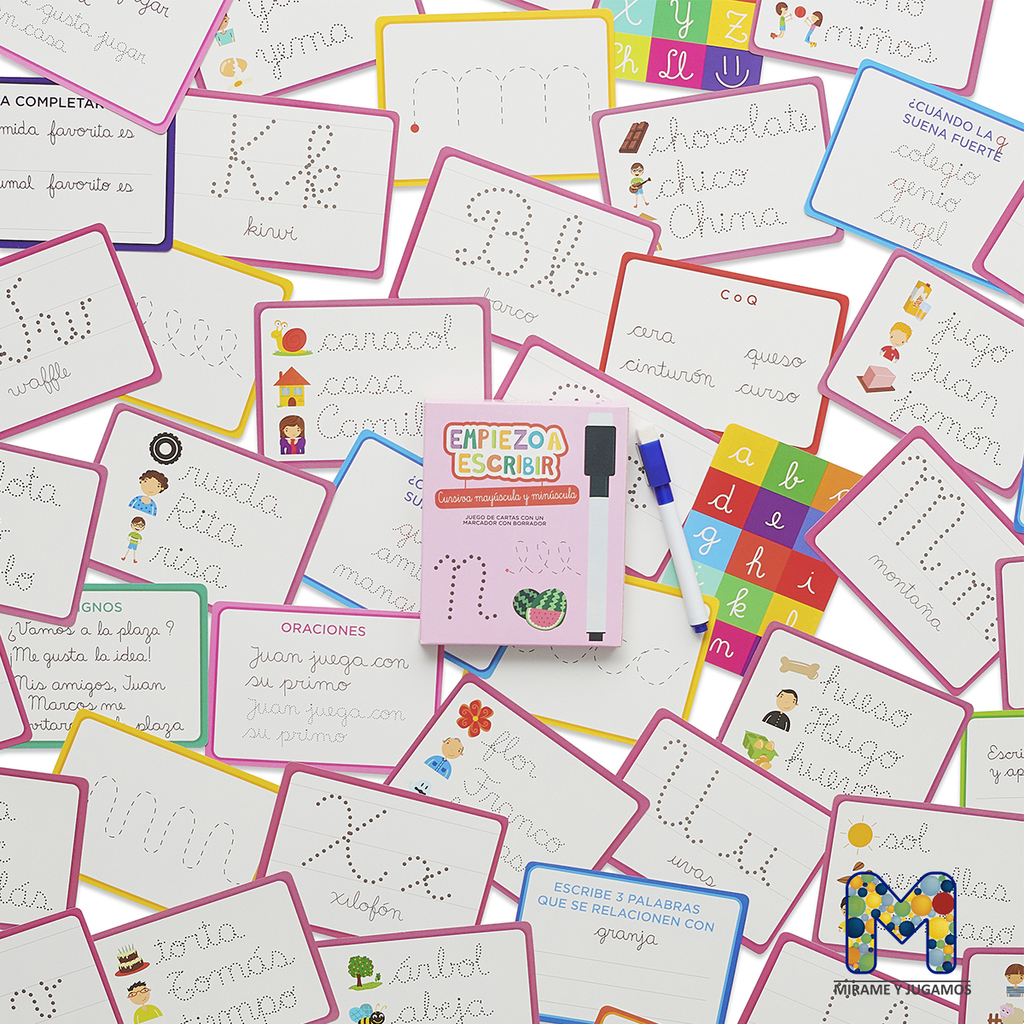 gusta jugar
casa
gema
mmm
x y z
Ch Ll
mimos
A COMPLETAR
favorita es
favorito es
K k
kiwi
B b
barco
chocolate
chico
China
¿CUÁNDO LA g
SUENA FUERTE
colegio
genio
ángel
W w
waffle
caracol
casa
C o Q
cera
queso
cinturón
curso
jugo
Juan
EMPIEZO A
ESCRIBIR
Cursiva mayúscula y minúscula
JUEGO DE CARTAS CON UN
MARCADOR CON BORRADOR
n
a b
d e
g h i
k l
m
M m
montaña
¿Vamos a la plaza?
¡Me gusta la idea!
Mis amigos, Juan
Marcos me
plaza
ORACIONES
Juan juega con
su primo
Juan juega con
su primo
hueso
Hugo
huevo
flor
Franco
U u
uvas
X x
xilofón
sol
ESCRIBE 3 PALABRAS
QUE SE RELACIONEN CON
granja
torta
Tomás
árbol
abeja
M
MIRAME Y JUGAMOS